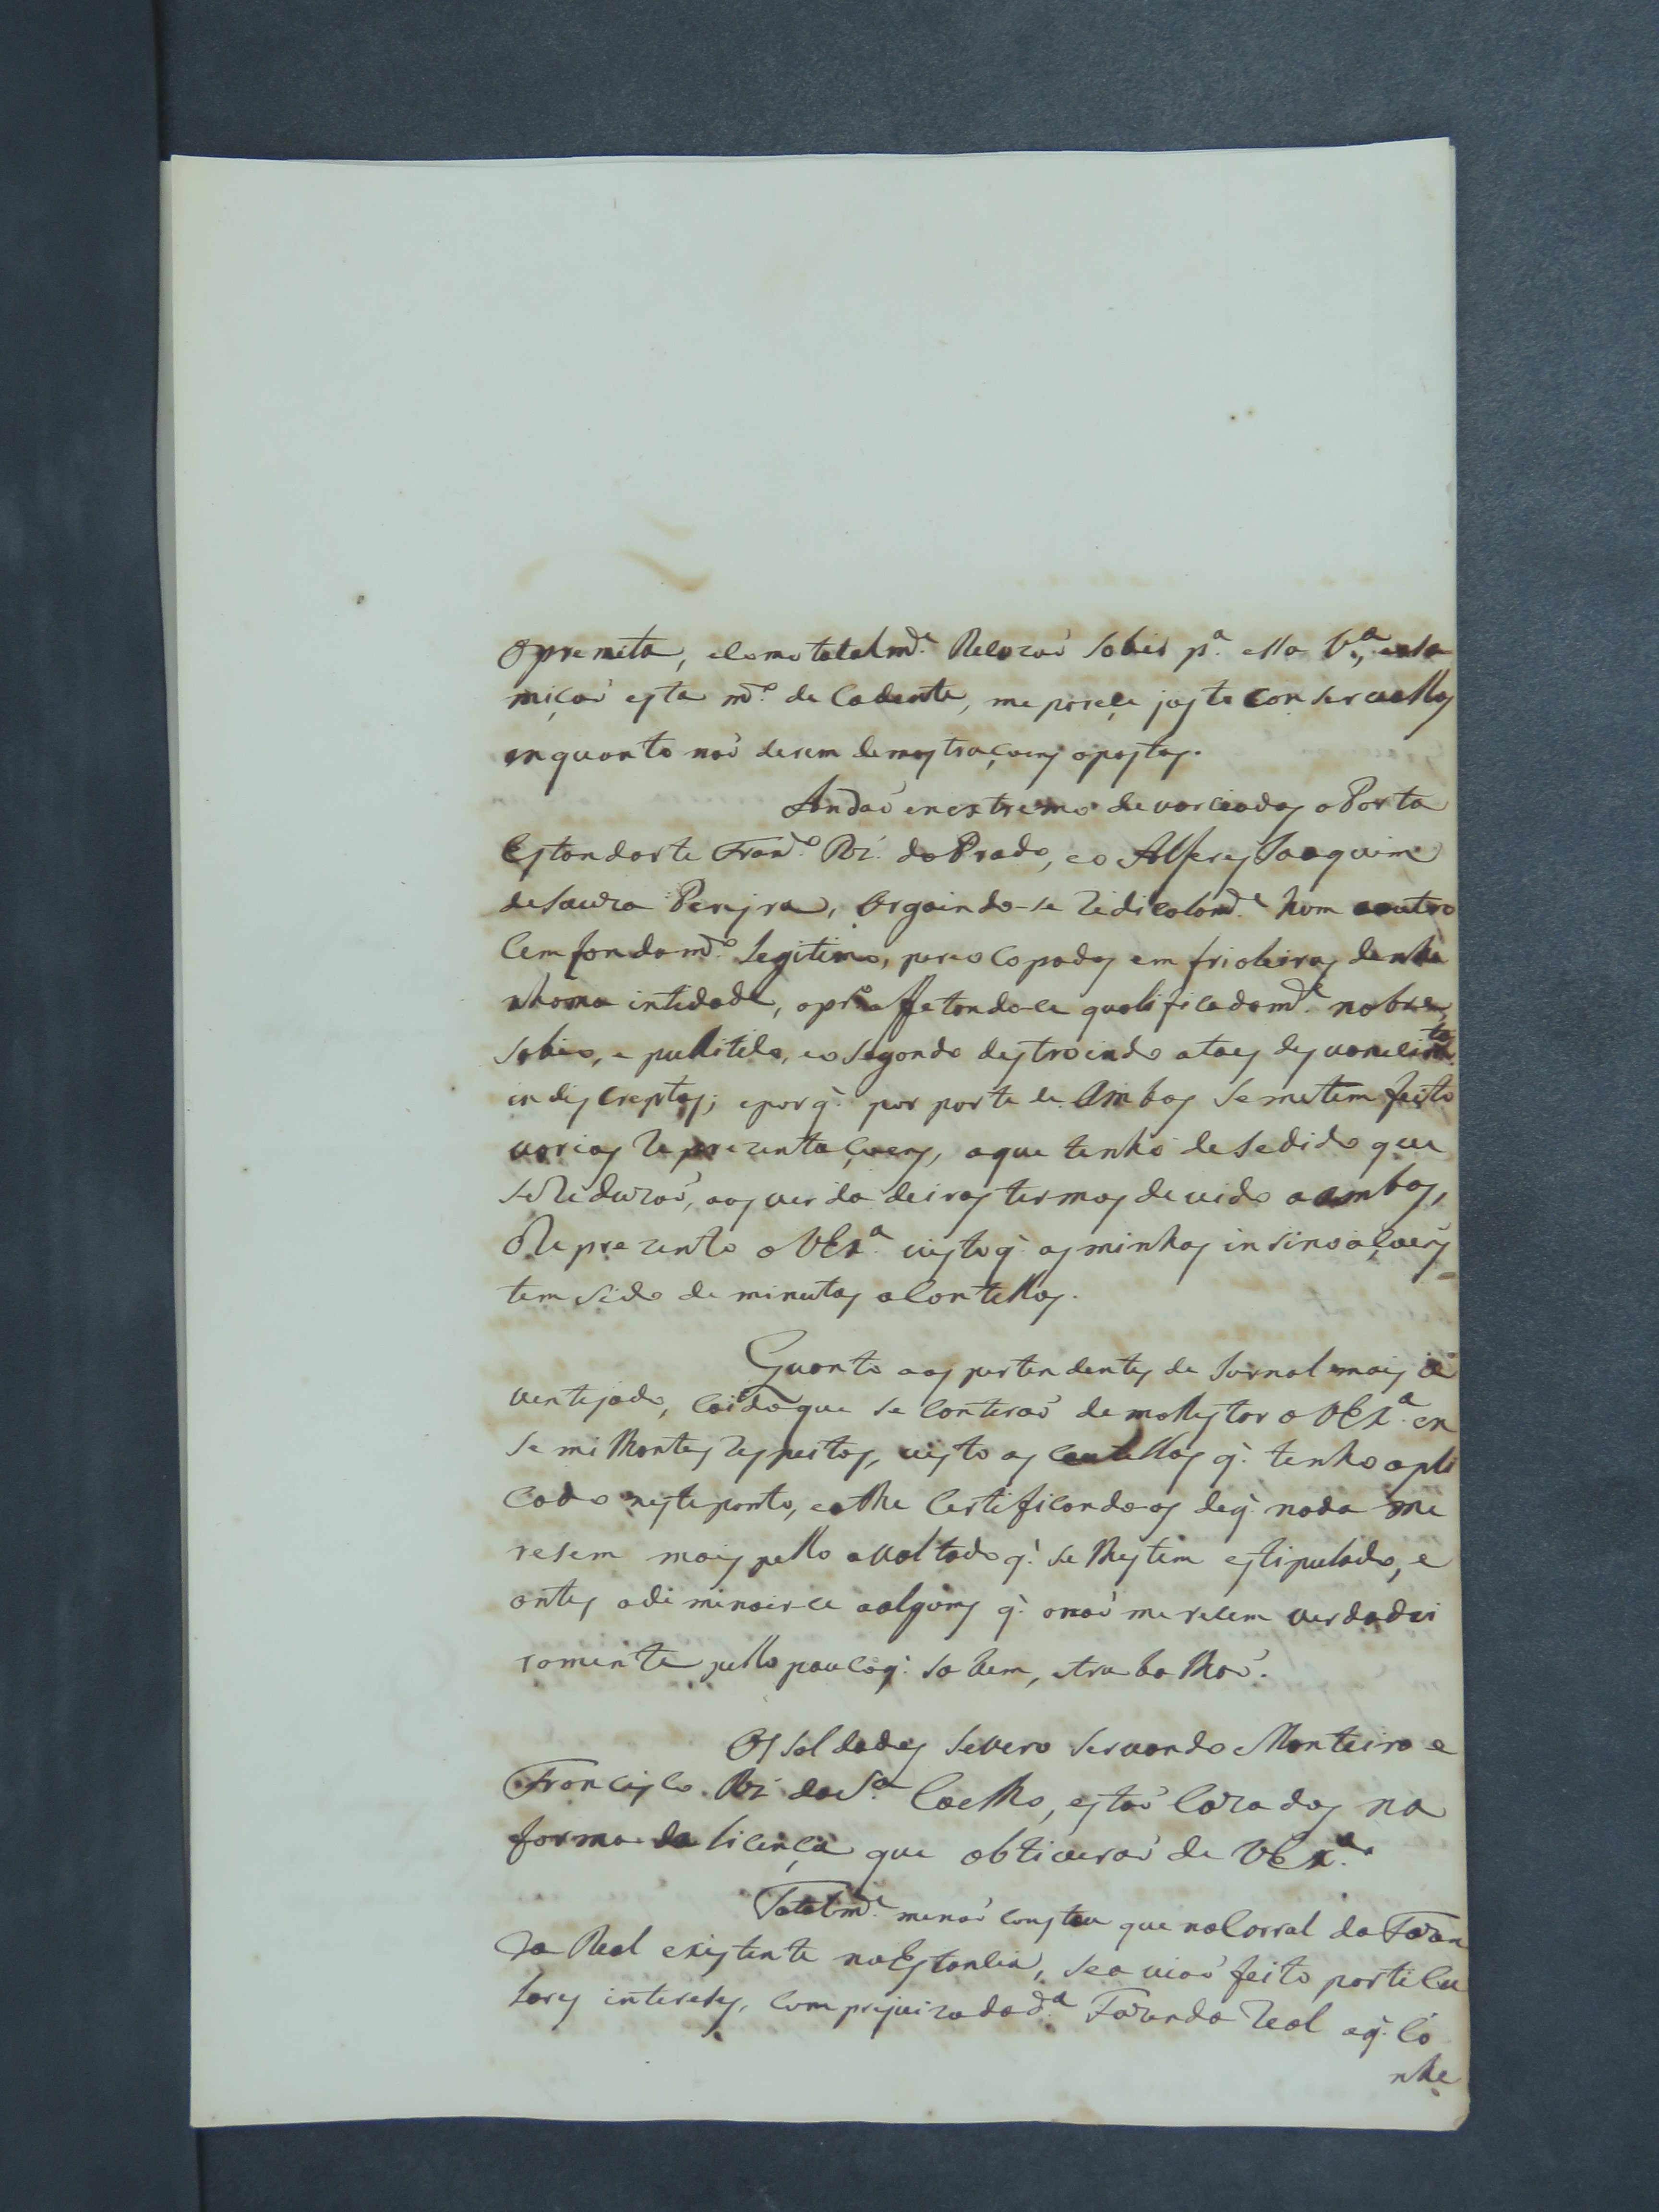 Opremeta, e como totalm.e Recozaõ sahir p.a essa V.a, e esta
miçaõ esta m.to de cadente, me parece justo conservallos
enquanto naõ derem demostraçoens opostas.
Andaõ en extremo desvarciados o Porta
Estandarte Fran.co Rz. do Prado, e o Alferes Joaquim
de Souza Pereyra, Orgoindo-se redicolam.e hum a outro
Cem fondam.to Legitimo, preocopados em frioleiras de nhe
nhoma intidade, o pr.o affetando-ce qualificadam.e nobre,
sabio, e pulitico, e o segondo destroindo a taes desvanecim.tos
indiscreptos; e porq. por parte de Ambos se me tem feito
varias reprezentaçoens, a que tenho desedido que
se reduzaõ, aos verdadeiros termos devido a ambos,
O Reprezento a VEx.a visto q. as minhas insinoaçoens
tem sido deminutas a contellos.
Quanto aos pertendentes de Jornal mais a
ventejado, coido que se conteraõ de mollestar a VEx.a en
semilhantes respeitos, visto as cautellas q. tenho apli
cado neste ponto, e athe Certificando-os de q. nada me
resem mais pello avoltado q. se lhes tem estipulado, e
antes a diminoir-ce a alguns q. o naõ merecem verdadei
ramente pello pouco q. sabem, e trabalhaõ.
Os soldados Severo Servando Monteiro e
Francisco Rz. da S.a Coelho, estaõ cazados na
forma da licença que obtiveraõ de VEx.a
Totalm.e me naõ constou que no Corral da Fazen
da Real existente na Estancia, se aviaõ feito particu
lares intereses, com prejuizo da d.a Fazenda Real a q. Co
nhe